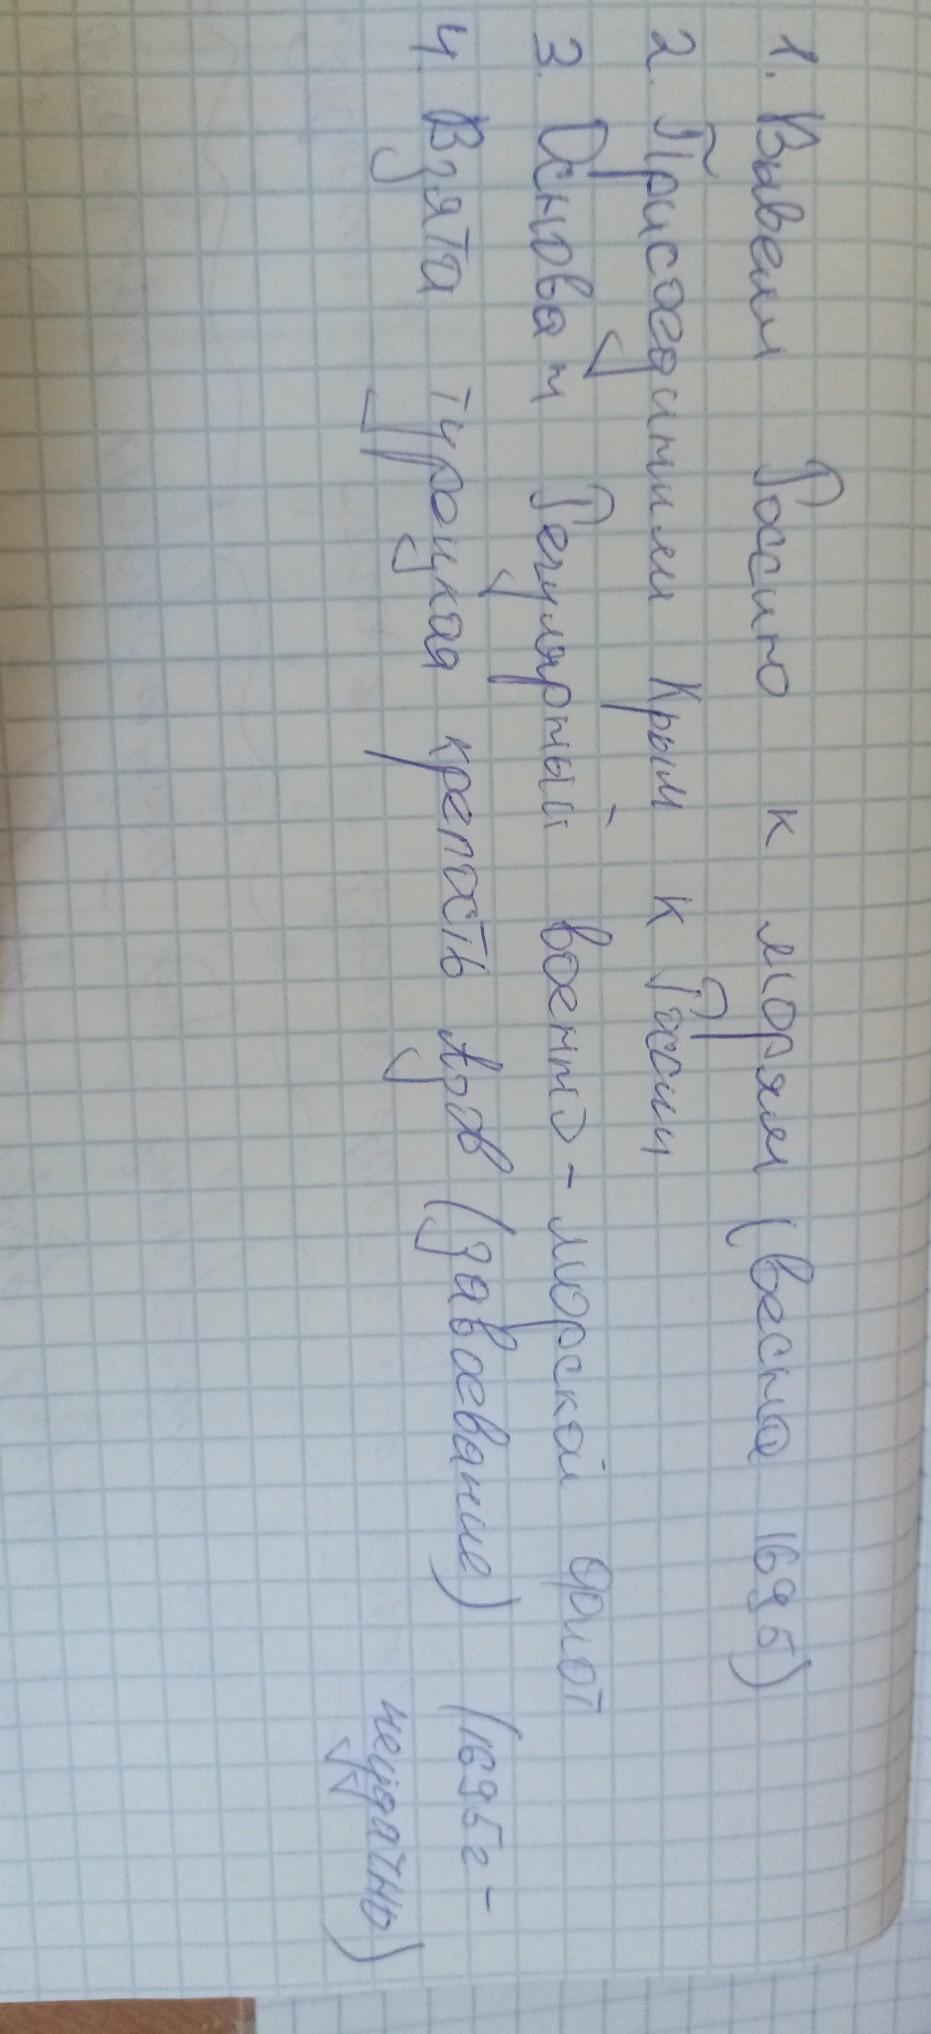 1. Вывели Россию к морям (весна 1695)
2. Присоединили Крым к России
3. Основан Регулярный военно-морской флот
4. Взята турецкая крепость Азов (завоевание) (1695г -
неудачно)